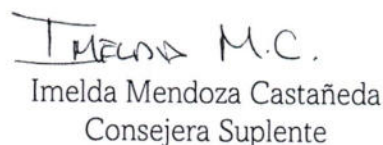 Imelda M.C.
Imelda Mendoza Castañeda
Consejera Suplente